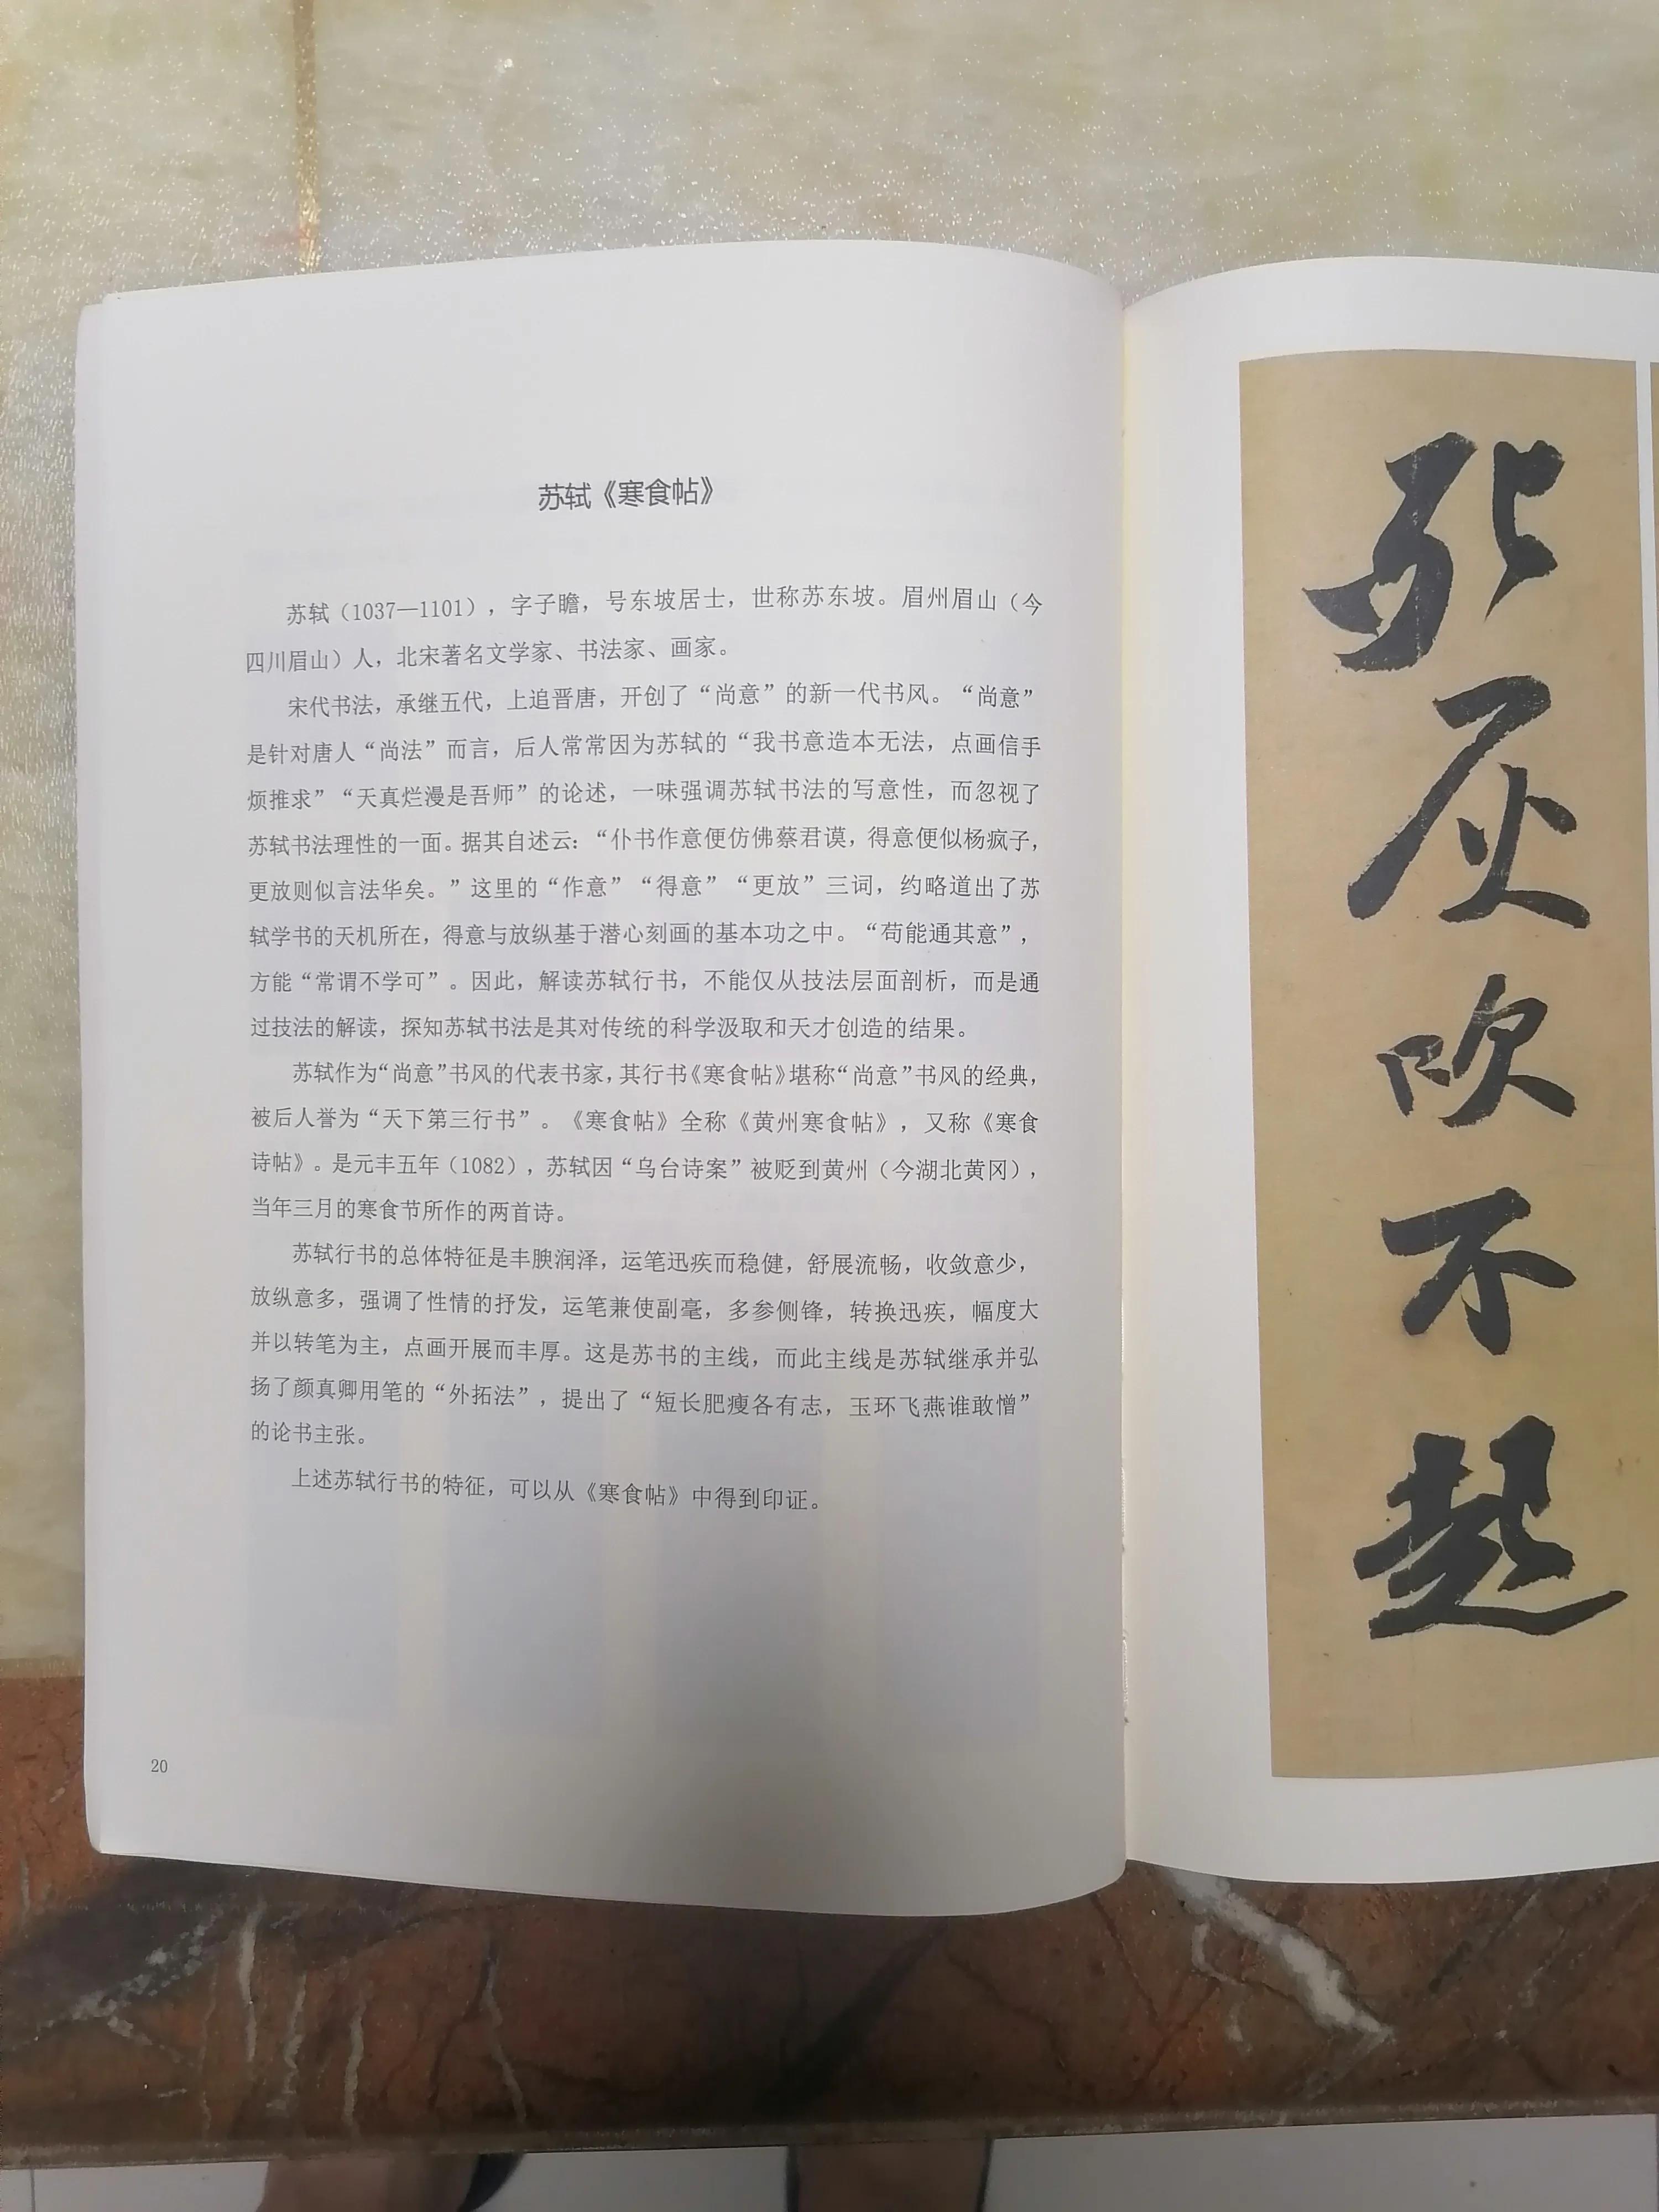 苏轼《寒食帖》
苏轼（1037—1101），字子瞻，号东坡居士，世称苏东坡。眉州眉山（今
四川眉山）人，北宋著名文学家、书法家、画家。
宋代书法，承继五代，上追晋唐，开创了“尚意”的新一代书风。“尚意”
是针对唐人“尚法”而言，后人常常因为苏轼的“我书意造本无法，点画信手
烦推求”“天真烂漫是吾师”的论述，一味强调苏轼书法的写意性，而忽视了
苏轼书法理性的一面。据其自述云：“仆书作意便仿佛蔡君谟，得意便似杨疯子，
更放则似言法华矣。”这里的“作意”“得意”“更放”三词，约略道出了苏
轼学书的天机所在，得意与放纵基于潜心刻画的基本功之中。“苟能通其意”，
方能“常谓不学可”。因此，解读苏轼行书，不能仅从技法层面剖析，而是通
过技法的解读，探知苏轼书法是其对传统的科学汲取和天才创造的结果。
苏轼作为“尚意”书风的代表书家，其行书《寒食帖》堪称“尚意”书风的经典，
被后人誉为“天下第三行书”。《寒食帖》全称《黄州寒食帖》，又称《寒食
诗帖》。是元丰五年（1082），苏轼因“乌台诗案”被贬到黄州（今湖北黄冈），
当年三月的寒食节所作的两首诗。
苏轼行书的总体特征是丰腴润泽，运笔迅疾而稳健，舒展流畅，收敛意少，
放纵意多，强调了性情的抒发，运笔兼使副毫，多参侧锋，转换迅疾，幅度大
并以转笔为主，点画开展而丰厚。这是苏书的主线，而此主线是苏轼继承并弘
扬了颜真卿用笔的“外拓法”，提出了“短长肥瘦各有志，玉环飞燕谁敢憎”
的论书主张。
上述苏轼行书的特征，可以从《寒食帖》中得到印证。
20
死灰吹不起